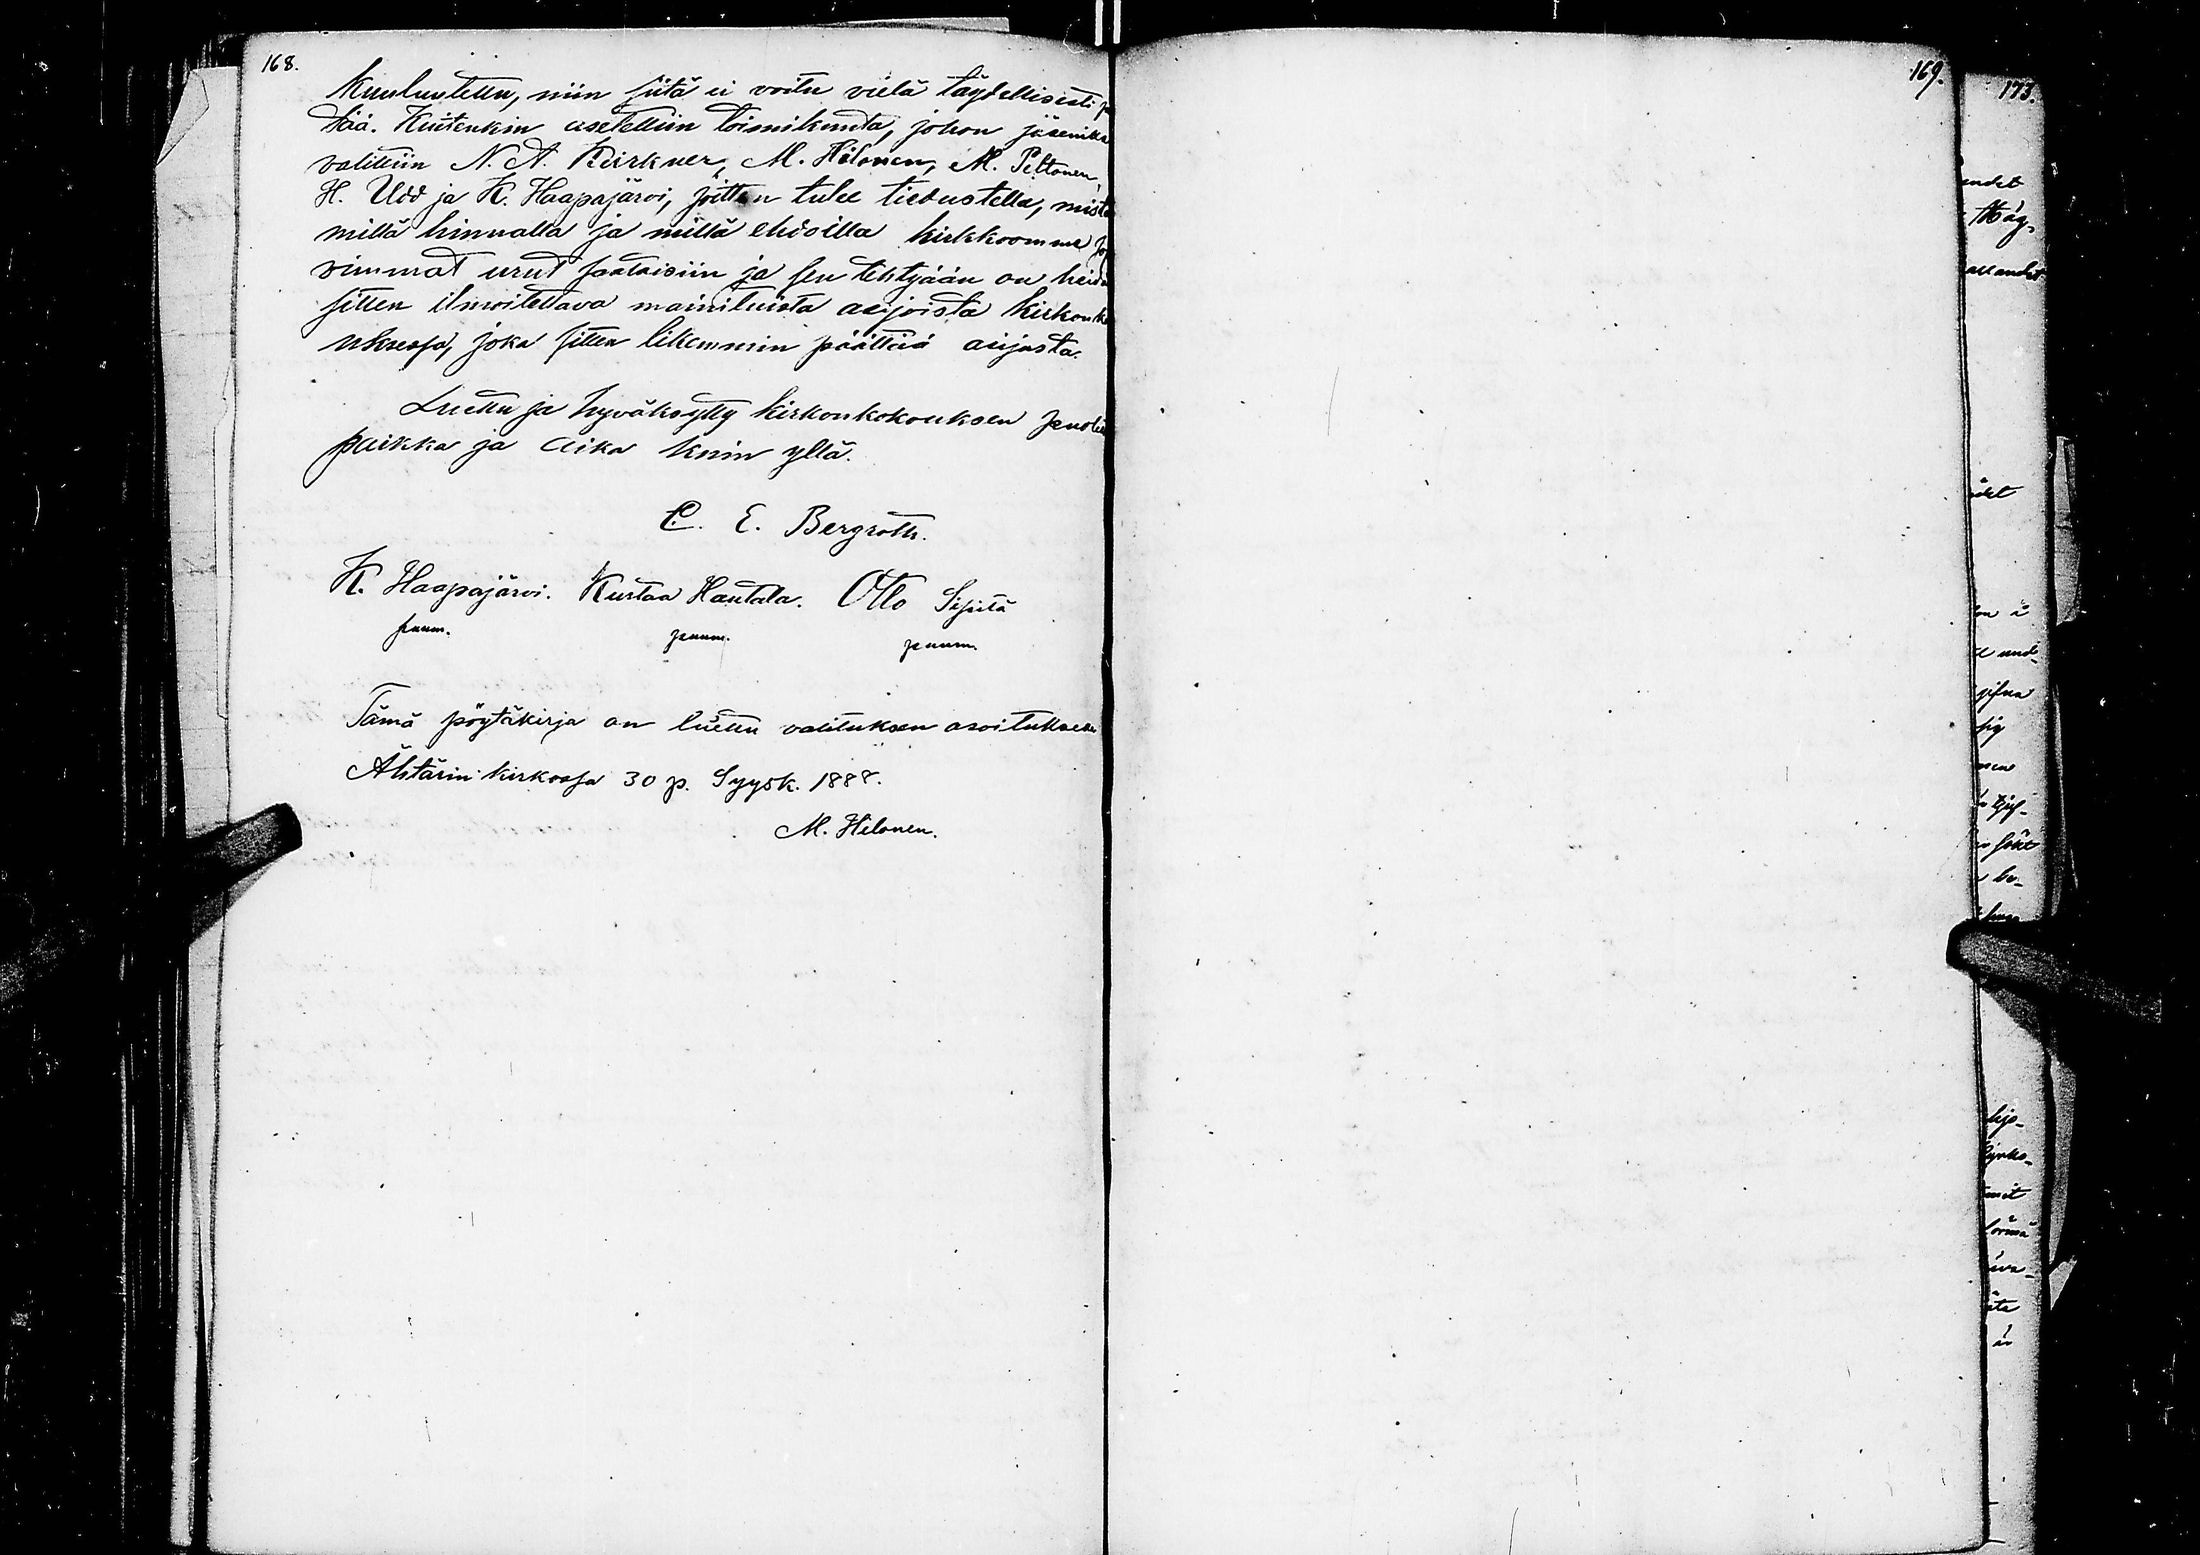 168.
kuulutettu, niin siitä ei voitu vielä täydellisesti
tää. Kuitenkin asetettiin toimikunta, johon jäseniksi
valittiin N. A. Kirkner, M. Hilonen, M. Peltonen,
H. Udd ja K. Haapajärvi, joitten tulee tiedustella, mistä
millä hinnalla ja millä ehdoilla kirkkoomme so
vimmat urut saataisiin ja sen tehtyään on heidän
sitten ilmoitettava mainituista asijoista kirkonko
uksessa, joka sitten likemmin päättää asijasta.
Luettu ja hyväksytty kirkonkokouksen puolesta
paikka ja aika kuin yllä.
C. E. Bergroth.
K. Haapajärvi. Kustaa Hautala. Otto Sipilä
puum. puum. puum.
Tämä pöytäkirja on luettu valituksen osoituksen
Ähtärin kirkossa 30 p. Syysk. 1888.
M. Hilonen.
169.
173.
andet
allandet